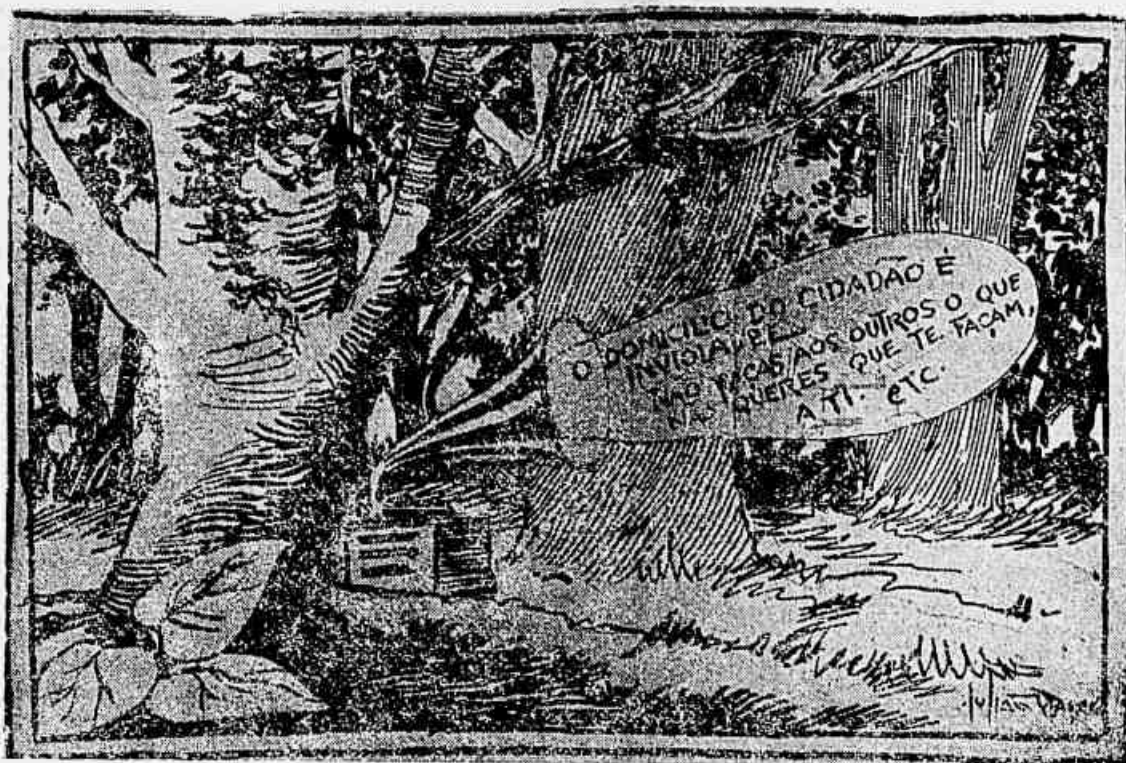 O DOMICILIO DO CIDADÃO É
INVIOLAVEL
NÃO FAÇAS AOS OUTROS O QUE
NÃO QUERES QUE TE FAÇAM,
A TI. ETC.